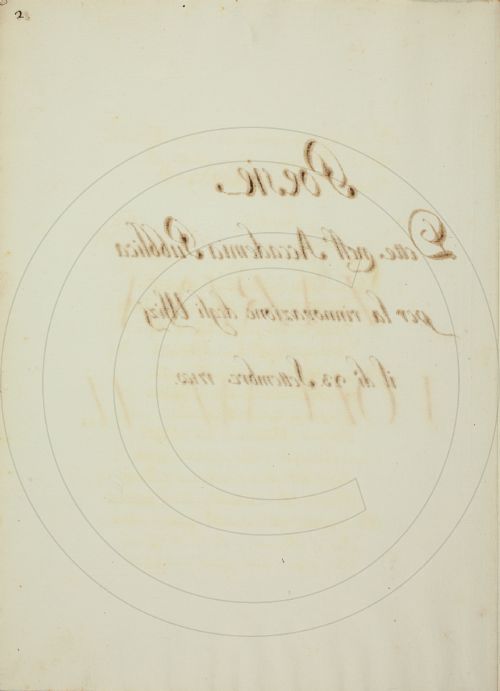 2
Poesie
Dette nell' Accademia Pubblica
per la rinnovazione degli Uffizj
il dì Settembre